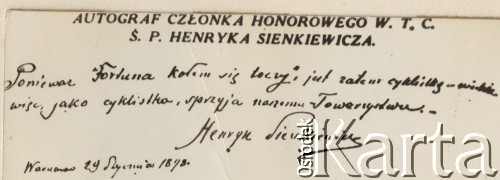 AUTOGRAF CZŁONKA HONOROWEGO W. T. C.
Ś. P. HENRYKA SIENKIEWICZA.
Ponieważ "Fortuna kołem się toczy", jest zatem cyklistką
więc, jako cyklistka, sprzyja naszemu Towarzystwu.
Henryk Sienkiewicz
Warszawa 29 Stycznia 1898.
Ośrodek
Karta